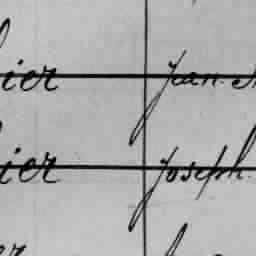 ier Jean-
ier Joseph.
er